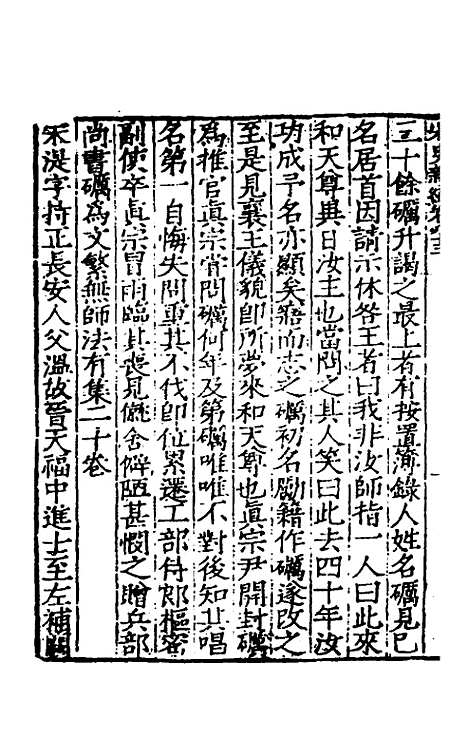 三十餘礪升謁之最上者有按置簿錄人姓名礪見已
名居首因請示休咎王者曰我非汝師指一人曰此來
和天尊異日汝主也當問之其人笑曰此去四十年汝
功成予名亦顯矣寤而志之礪初名勵籍作礪遂改之
至是見襄王儀貌即所夢來和天尊也眞宗尹開封礪
為推官眞宗甞問礪何年及第礪唯唯不對後知其唱
名第一自悔失問重其不伐即位累遷工部侍郎樞密
副使卒眞宗冒雨臨其喪見僦舍僻陋甚憫之贈兵部
尚書礪為文繁無師法有集二十卷
宋湜字持正長安人父溫故晉天福中進士至左補闕